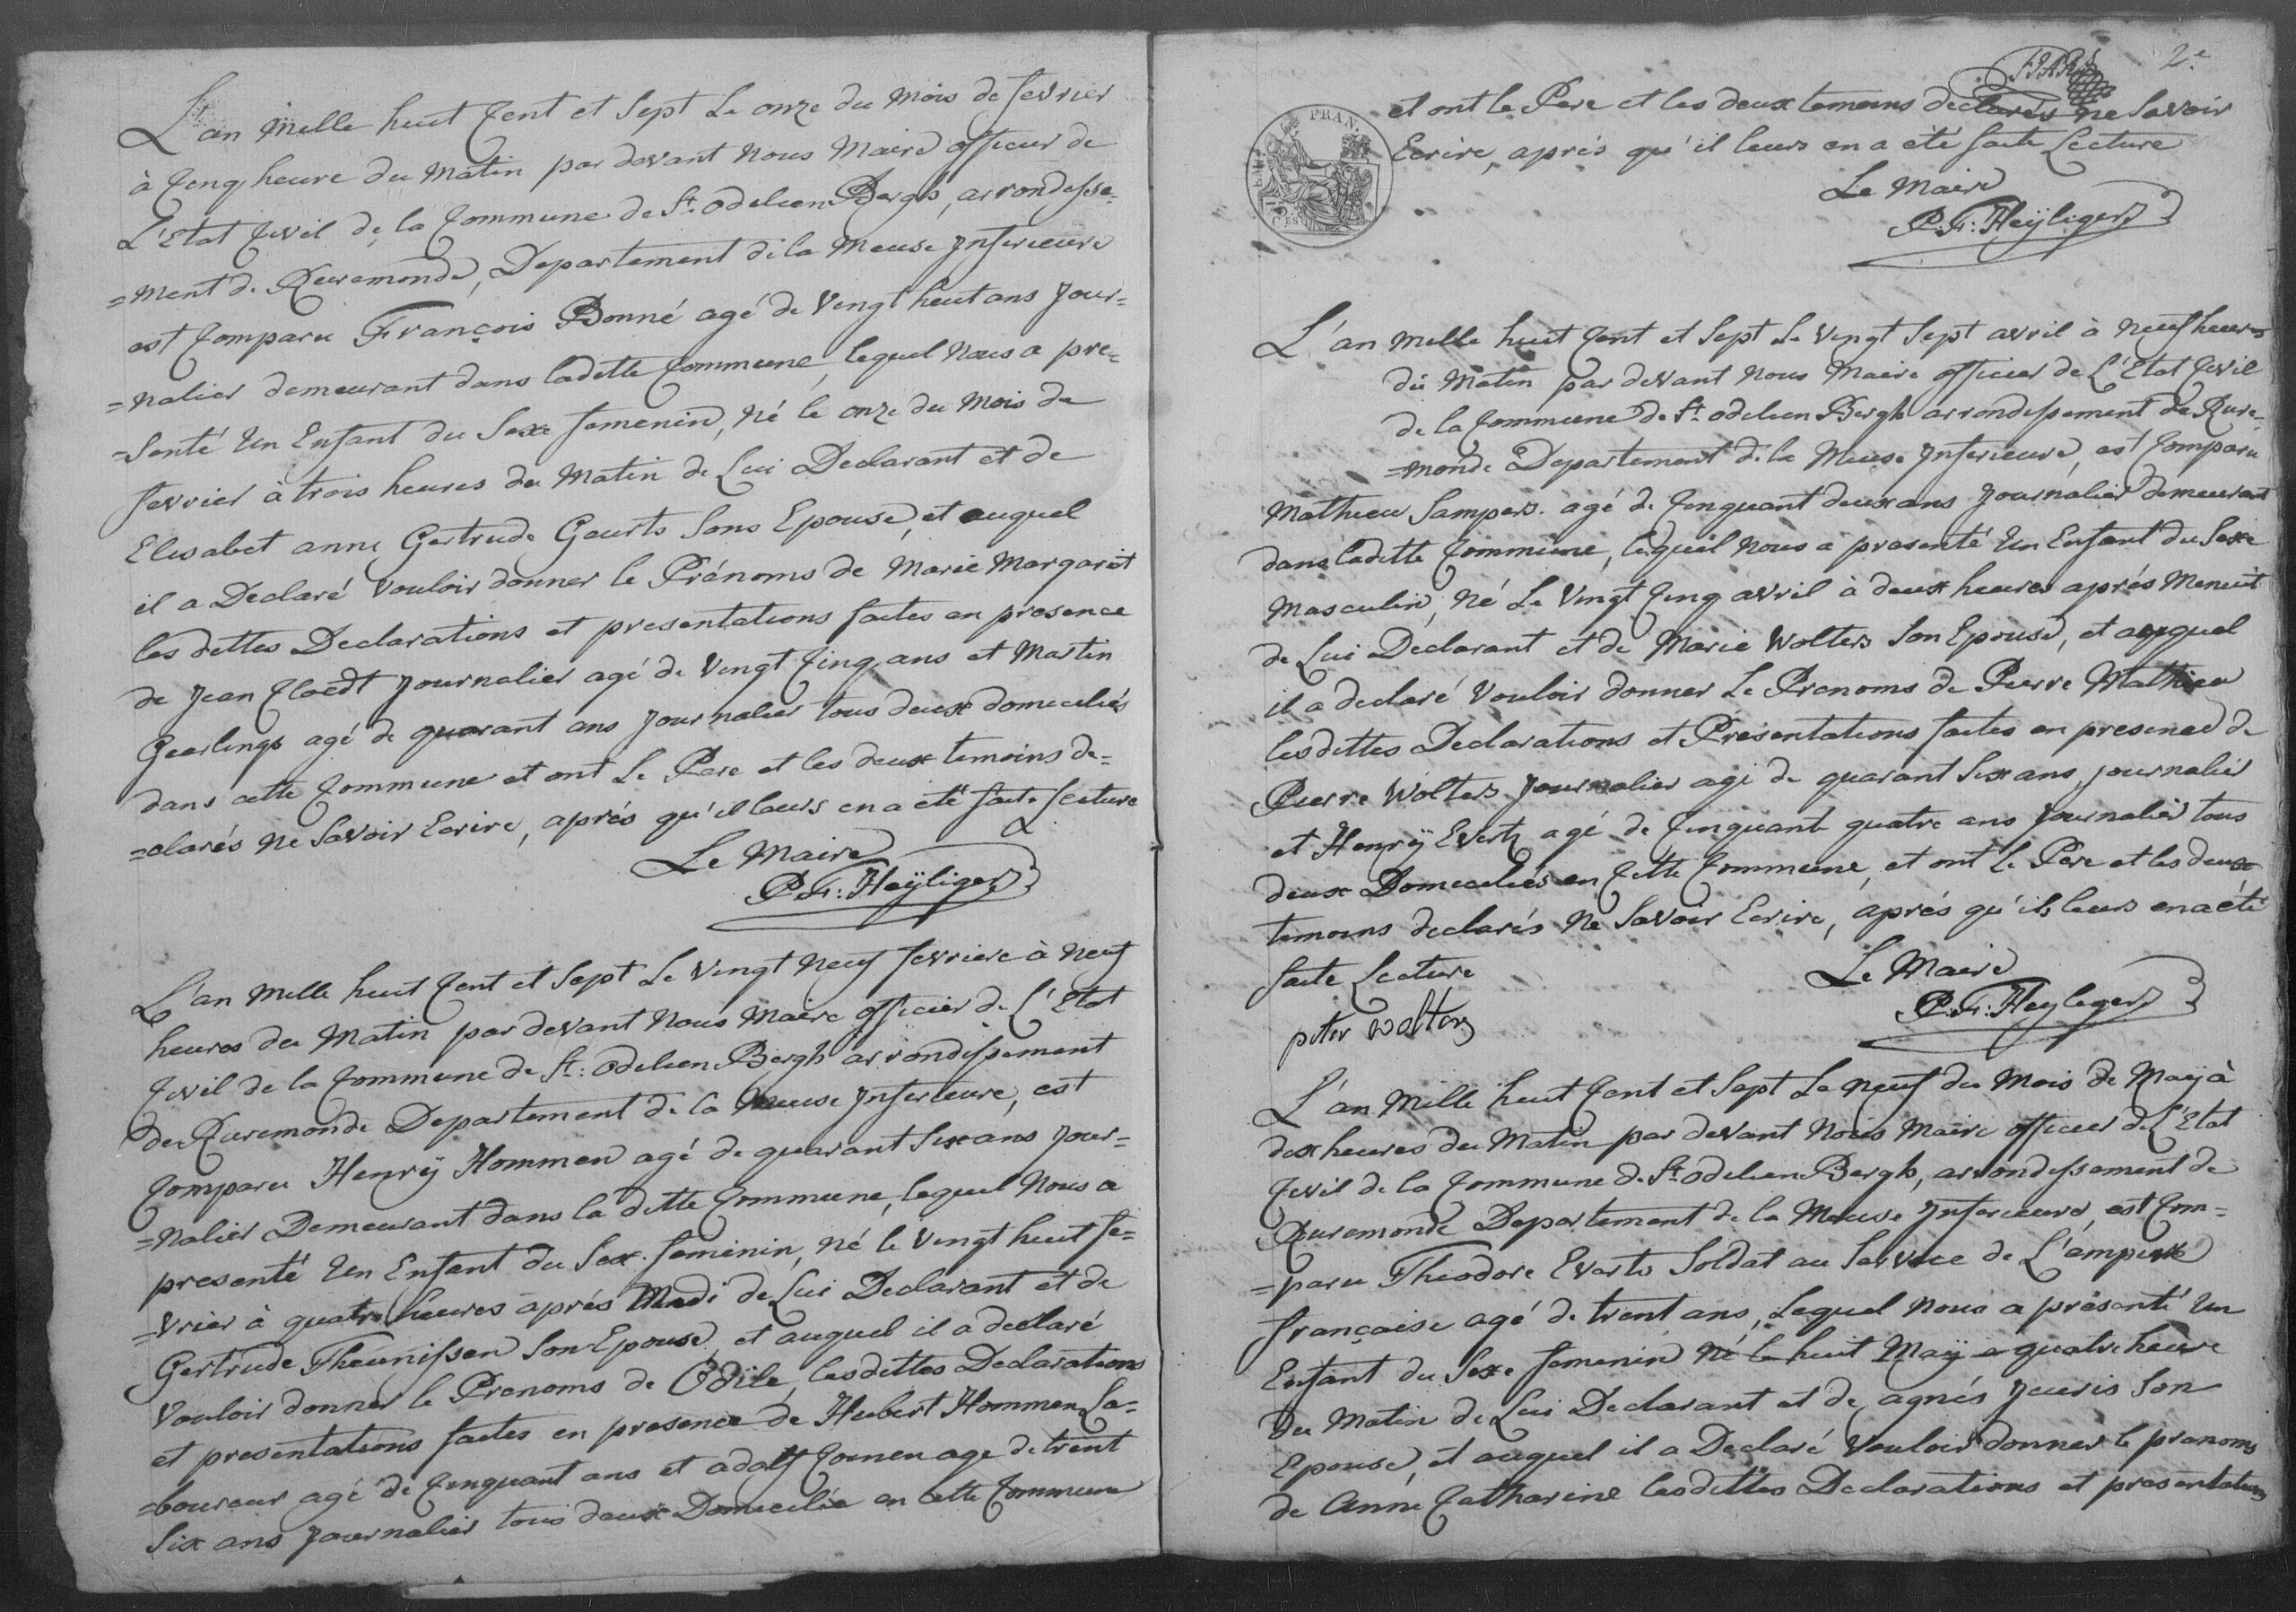 L'an Mille huit Cent et Sept Le onze du Mois de fevrier
à Cinq heure du Matin par devant Nous Maire officier de
L'Etat Civil de la Commune de St. odelien Bergh, arrondisse=
=ment de Ruremonde, Departement de la Meuse Inferieure
est Comparu François Bonné agé de Vingt huit ans Jour=
=nalier demeurant dans ladette Commune, lequel Nous a pre=
=senté Un Enfant du Sexe femenin, né le onze du Mois de
fevrier à trois heures du Matin de Lui Declarant et de
Elisabet anne Gertrude Geurts Sons Epouse, et auquel
il a Declaré Vouloir donner le Prénoms de Marie Margaret
les dettes Declarations et presentations faites en presence
de Jean Cloedt Journalier agé de Vingt Cinq ans et Martin
Geerlings agé de quarant ans Journalier tous deux domeceliés
dans cette Commune et ont Le Pere et les deux temoins de=
=clarés ne Savoir Ecrire, aprés qu'il leurs en a été faite Lecture
Le Maire
P. F: Heÿligers
L'an Mille huit Cent et Sept Le Vingt Neuf fevriere à Neuf
heures du Matin par devant Nous Maire officier de L'Etat
Civil de la Commune de St: Odelien Bergh arrondissement
de Ruremonde Departement de la Meuse Inferieure, est
Comparu Henrÿ Hommen agé de quarant Six ans Jour=
=nalier Demeurant dans la dette Commune, lequel Nous a
presenté Un Enfant du Sex. feminin, né le Vingt huit fe=
=vrier à quatre heures aprés Medi de Lui Declarant et de
Gertrude Theunissen Son Epouse, et auquel il a declaré
Vouloir donner le Prenoms de Odile, lesdettes Declarations
et presentations faites en presence de Hubert Hommen La=
=boureur agé de Cinquant ans et adolf Coenen agé de trent
Six ans Journalier tous deux Domecelié en cette Commune
2e
et ont le Pere et les deux temoins declarés ne Savoir
Ecrire, aprés qu'il leurs en a été faite Lecture
Le Maire
P. F: Heÿligers
L'an Mille huit Cent et Sept Le Vingt Sept avril à Neuf heures
du Matin par devant Nous Maire officier de L'Etat Civil
de la Commune de St. odelien Bergh arrondissement de Rure=
=monde Departement de la Meuse Inferieure, est Comparu
Mathieu Sampers. agé de Cinquant deux ans Journalier demeurant
dans ladette Commune, lequel Nous a presenté Un Enfant du Sexe
Masculin, né Le Vingt Cinq avril à deux heures aprés Menuit
de Lui Declarant et de Marie Wolters Son Epouse, et auquel
il a declaré Vouloir donner Le Prenoms de Pierre Mathieu
lesdettes Declarations et Présentations faites en presence de
Pierre Wolters Journalier agé de quarant Six ans, journalier
et Henrÿ Everts agé de Cinquant quatre ans Journalier tous
deux Domeceliés en Cette Commune, et ont le Pere et les deux
temoins declarés Ne Savoir Ecrire, aprés qu'ils leurs en a été
faite Lecture
Le Maire
P. F: Heyligers
peter wolters
L'an Mille huit Cent et Sept Le Neuf du Mois de Maÿ à
dix heures du Matin par devant Nous Maire officier de L'Etat
Civil de la Commune de St. odelien Bergh, arrondissement de
Ruremonde Departement de la Meuse Inferieure, est Com=
=paru Theodore Everts Soldat au Service de L'ampire
française agé de trent ans, Lequel Nous a présenté Un
Enfant du Sexe femenin Né le huit Maÿ a quatre heure
du Matin de Lui Declarant et de agnés Jeuris Son
Epouse, et auquel il a Declaré Vouloir donner le prenoms
de Anne Catharine lesdettes Declarations et presentations